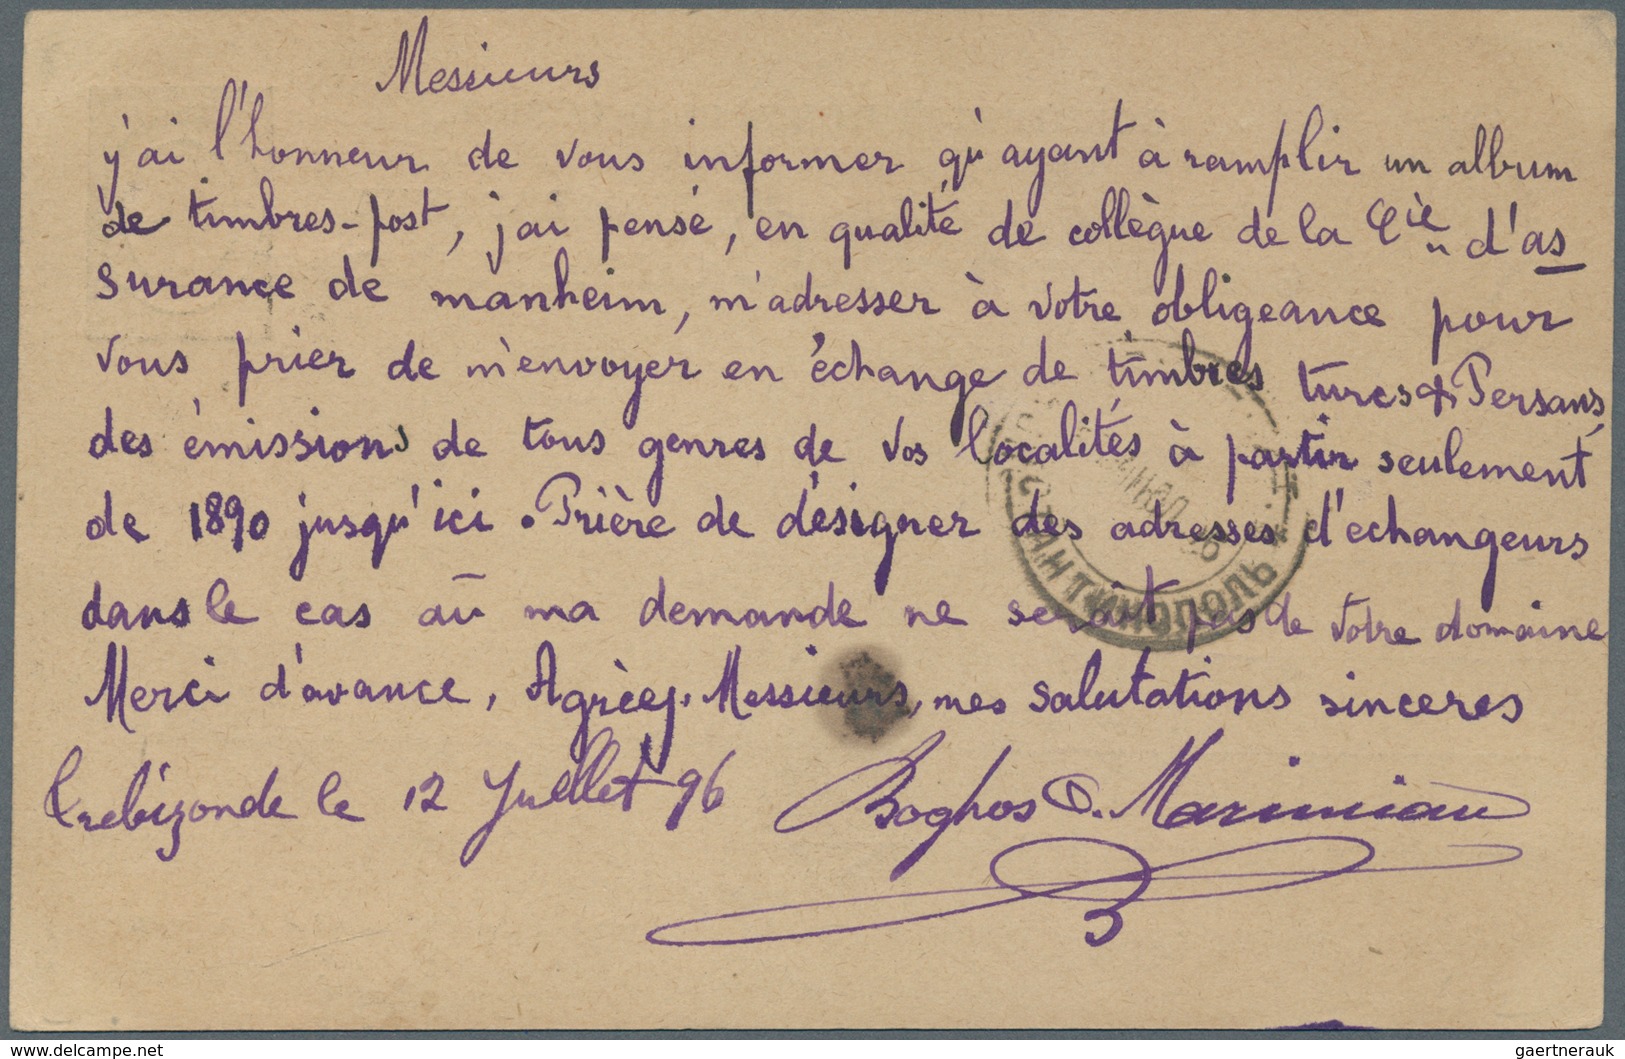 Messieurs
j'ai l'honneur de vous informer qu'ayant à ramplir un album
de timbres-post, j'ai pensé, en qualité de collègue de la Cie d'as
surance de manheim, m'adresser à votre obligeance pour
vous prier de m'envoyer en échange de timbres turcs & Persans
des émissions de tous genres de vos localités à partir seulement
de 1890 jusqu'ici. Prière de désigner des adresses d'echangeurs
dans le cas aū ma demande ne serait pas de votre domaine
Merci d'avance, Agrèez. Messieurs, mes salutations sinceres
Trebizonde le 12 Juillet 96 Boghos O. Marimian
delcampe.net
gaertnerauk